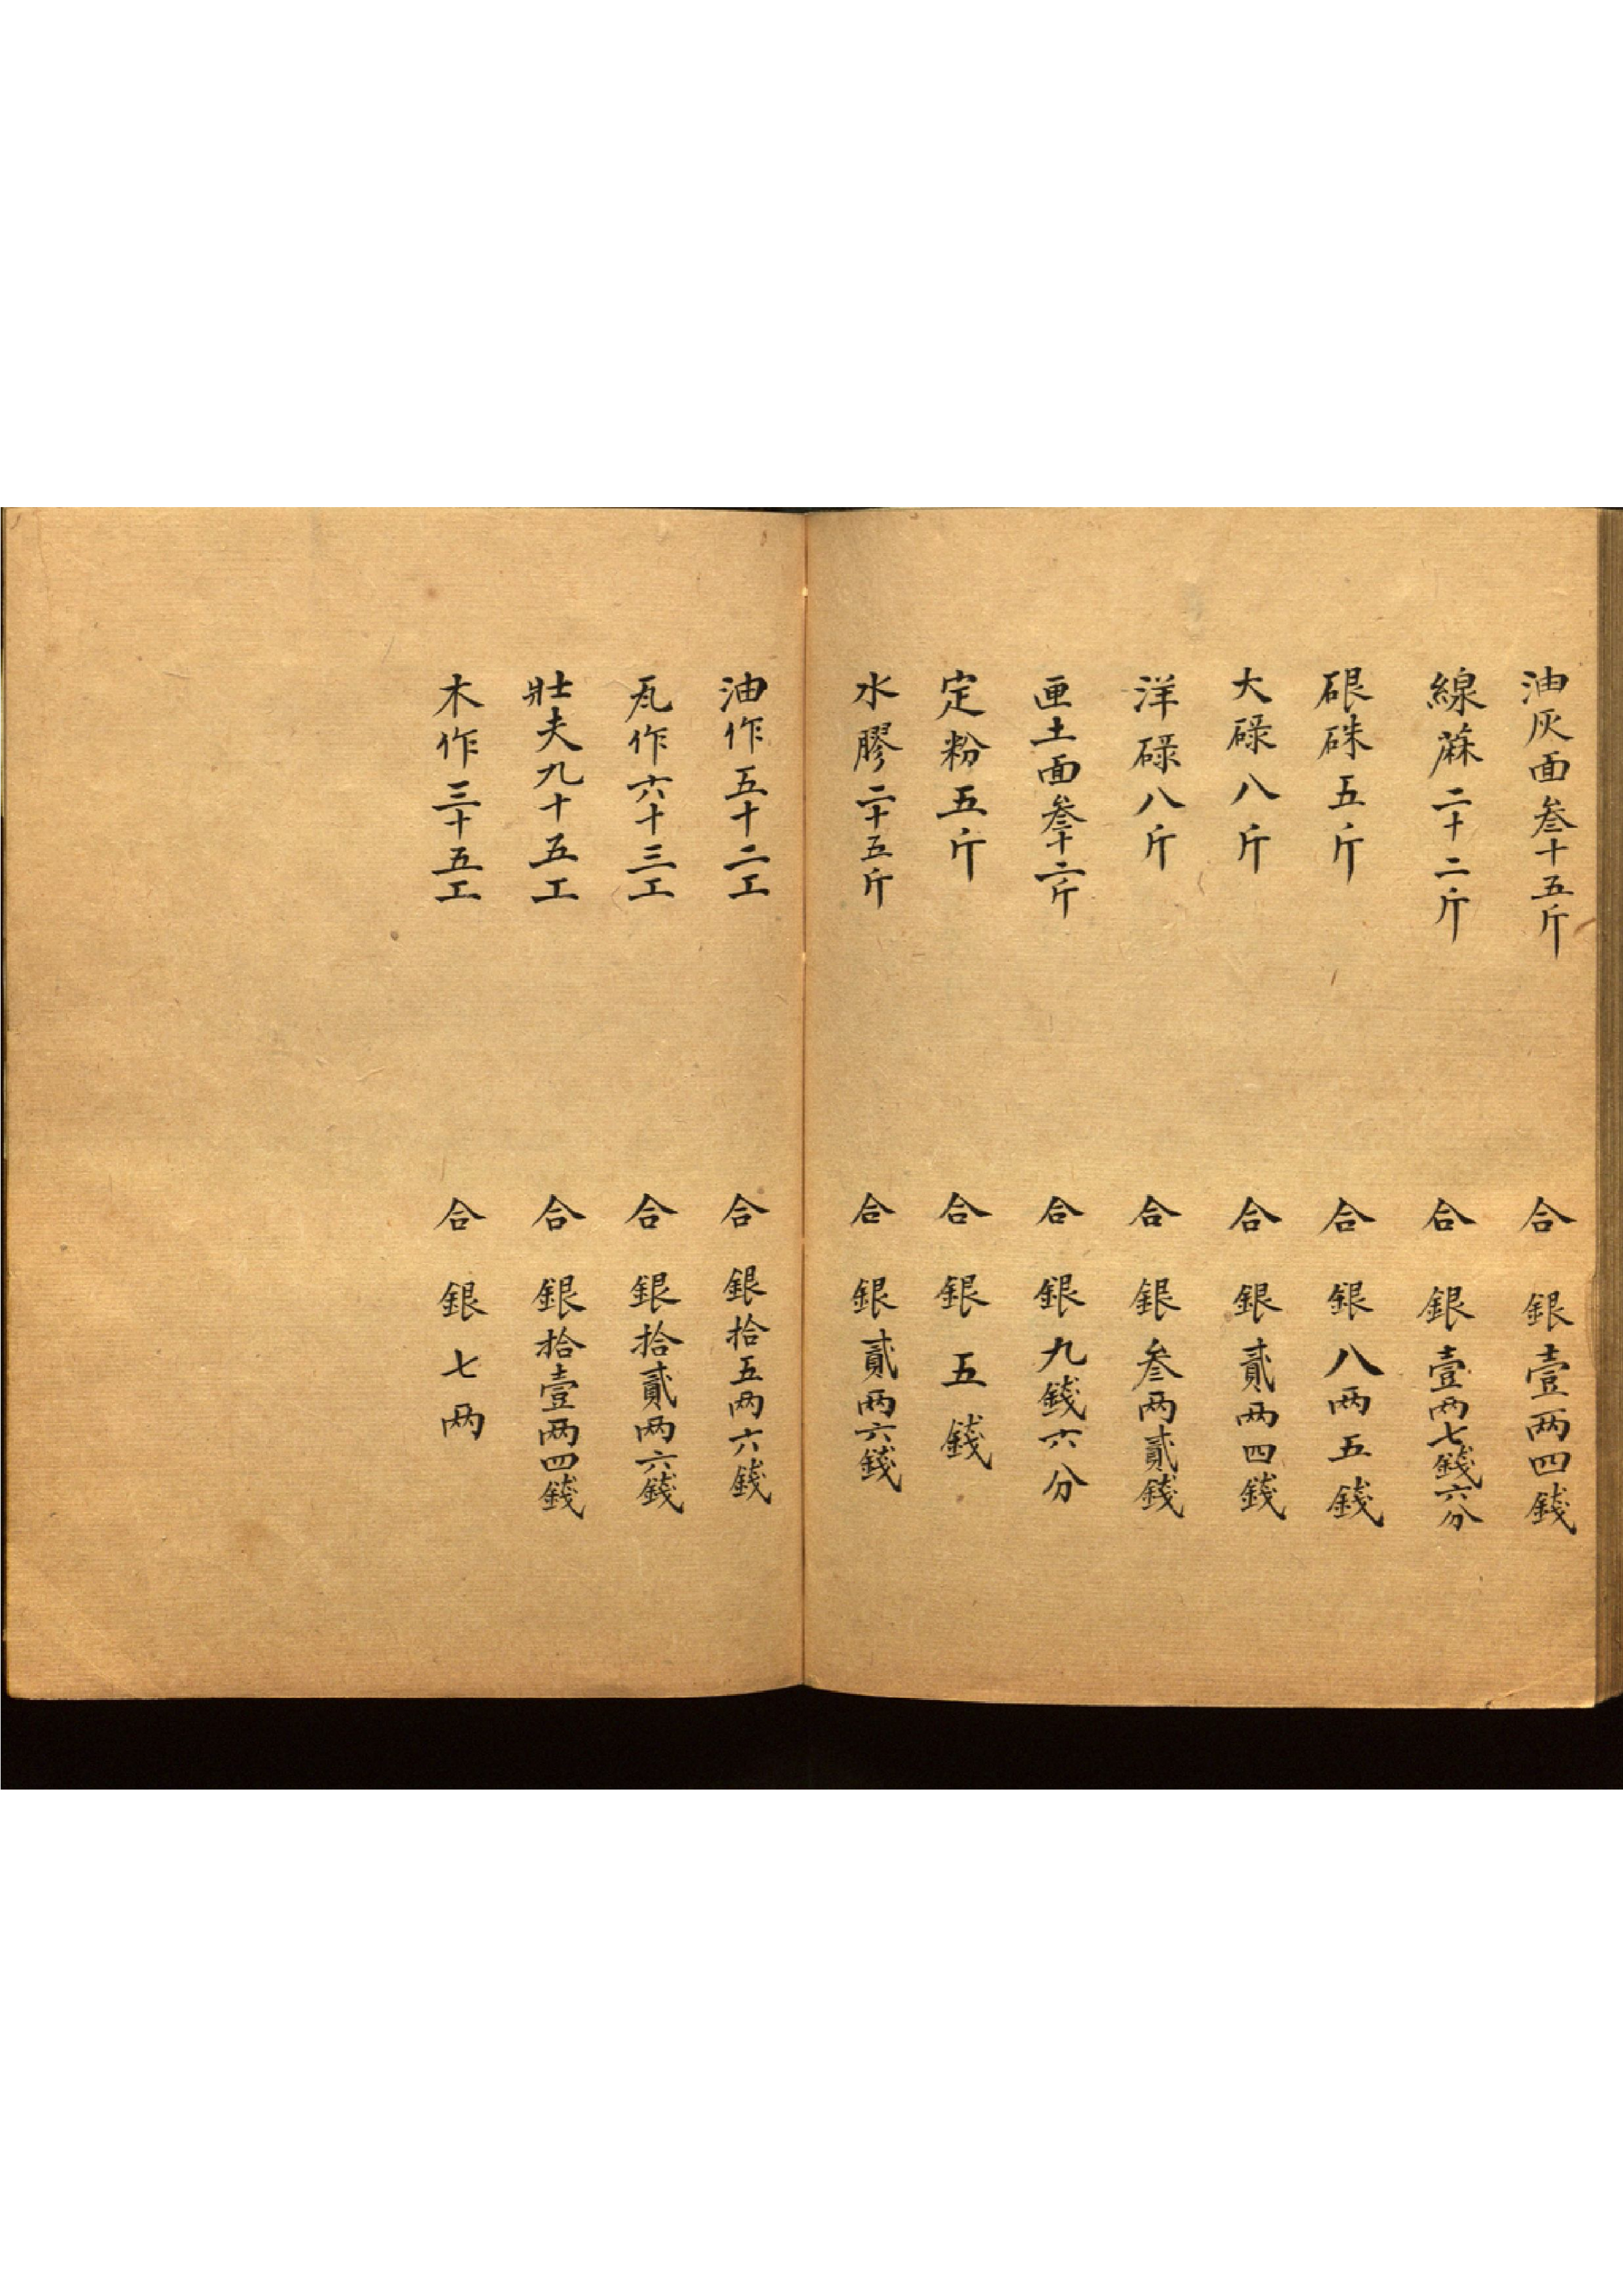 油灰面叁十五斤 合 銀壹两四錢
線蔴二十二斤 合 銀壹两七錢六分
硍硃五斤 合 銀八两五錢
大碌八斤 合 銀貳两四錢
洋碌八斤 合 銀叁两貳錢
画土面叁十二斤 合 銀九錢六分
定粉五斤 合 銀五錢
水膠二十五斤 合 銀貳两六錢
油作五十二工 合 銀拾五两六錢
瓦作六十三工 合 銀拾貳两六錢
壯夫九十五工 合 銀拾壹两四錢
木作三十五工 合 銀七两